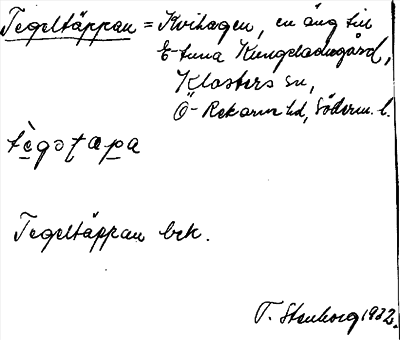 Tegeltäppan = Kvihagen, en äng till
Etuna Kungsladugård,
Klosters sn,
Ö-Rekarne hd, Söderm. l.
tègətapa
Tegeltäppan bek.
T. Stenborg 1932.